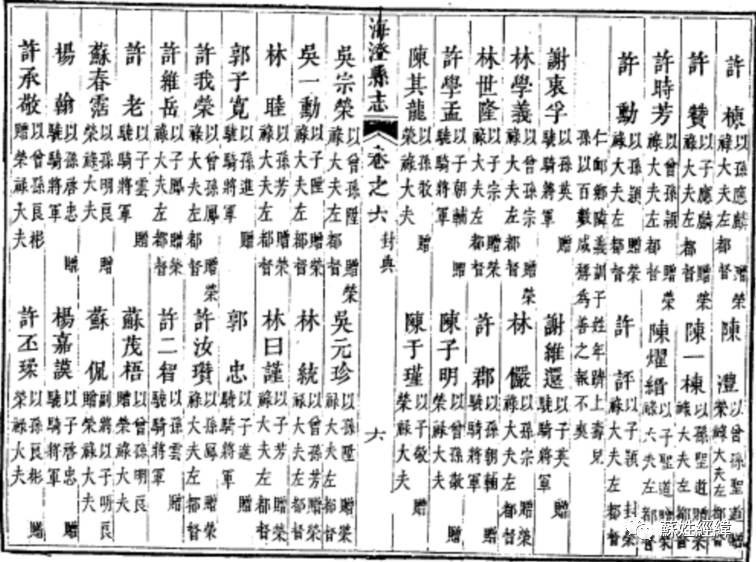 許楨 以孫應麟贈榮祿大夫左都督 陳灃 以曾孫聖道贈榮祿大夫左都督
許贊 以子應麟贈榮祿大夫左都督 陳一棟 以孫聖道贈榮祿大夫左都督
許時芳 以曾孫頴贈榮祿大夫左都督 陳耀縉 以子聖道贈榮祿大夫左都督
許勳 以孫頴贈榮祿大夫左都督 許評 以子頴封榮祿大夫左都督
仁卹鄉隣義訓子姓年躋上壽見
孫以百數咸稱為善之報不爽
謝衷孚 以孫英贈驍騎將軍 謝維還 以子英贈驍騎將軍
林學義 以曾孫宗贈榮祿大夫左都督 林儼 以孫宗贈榮祿大夫左都督
林世隆 以子宗贈榮祿大夫左都督 許郡 以孫朝輔贈驍騎將軍
許學孟 以子朝輔贈驍騎將軍 陳子明 以曾孫敬贈榮祿大夫
陳其龍 以孫敬贈榮祿大夫 陳于瑾 以子敬贈榮祿大夫
海澄縣志 卷之六 封典 六
吳宗榮 以曾孫陞贈榮祿大夫左都督 吳元珍 以孫陞贈榮祿大夫左都督
吳一勳 以子陞贈榮祿大夫左都督 林統 以曾孫芳贈榮祿大夫左都督
林睦 以孫芳贈榮祿大夫左都督 林曰謹 以子芳贈榮祿大夫左都督
郭子寬 以孫進贈驍騎將軍 郭忠 以子進贈驍騎將軍
許我榮 以曾孫鳳贈榮祿大夫左都督 許汝瓚 以孫鳳贈榮祿大夫左都督
許維岳 以子鳳贈榮祿大夫左都督 許二智 以孫雲贈驍騎將軍
許老 以子雲贈驍騎將軍 蘇茂梧 以曾孫明良贈榮祿大夫
蘇春霑 以孫明良贈榮祿大夫 蘇侃 副將以子明良贈榮祿大夫
楊翰 以孫啓忠贈驍騎將軍 楊嘉謨 以子啓忠贈驍騎將軍
許承敬 以曾孫良彬贈榮祿大夫 許丕 以孫良彬贈榮祿大夫
蘇姓經緯